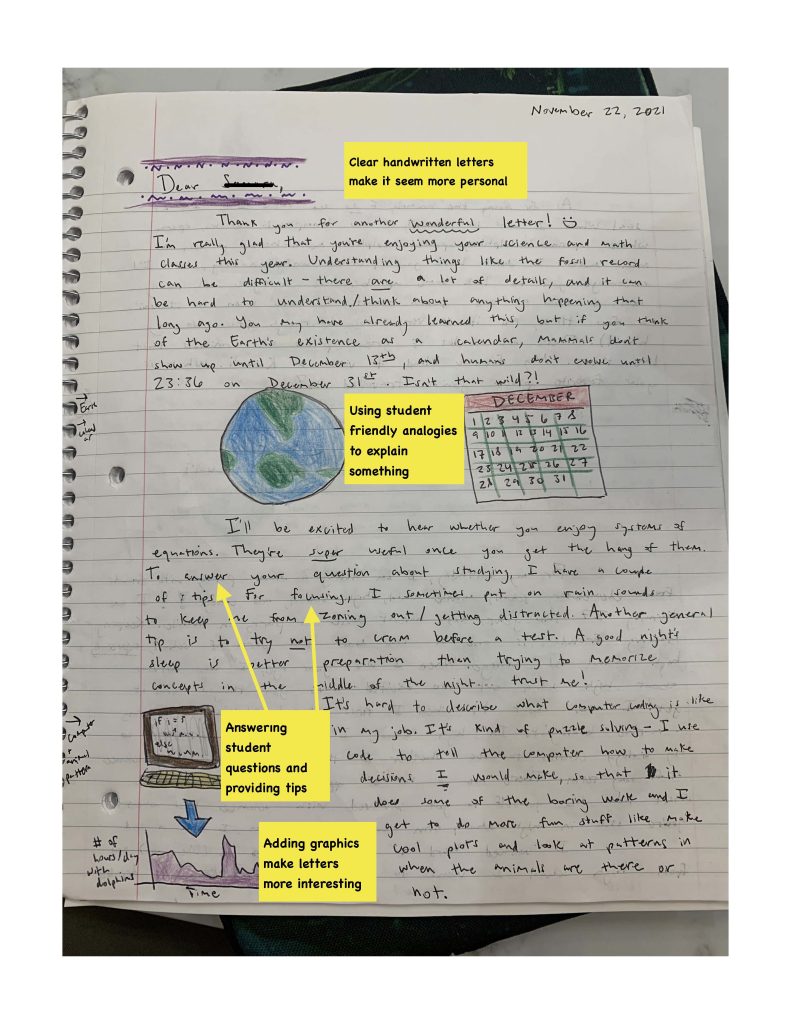 November 22, 2021
Clear handwritten letters
make it seem more personal
Dear
Thank you for another wonderful letter!
I'm really glad that you're enjoying your science and math
classes this year. Understanding things like the fossil record
can be difficult - there are a lot of details, and it can
be hard to understand/think about anything happening that
long ago. You may have already learned this, but if you think
of the Earth's existence as a calendar, mammals don't
show up until December 13th, and humans don't evolve until
23:36 on December 31st. Isn't that wild?!
→ Earth
→
Using student
friendly analogies
to explain
something
DECEMBER
1 2 3 4 5 6 7 8
9 10 11 12 13 14 15 16
17 18 19 20 21 22
23 24 25 26 27
28 29 30 31
I'll be excited to hear whether you enjoy systems of
equations. They're super useful once you get the hang of them.
To answer your question about studying, I have a couple
of tips. For focusing, I sometimes put on rain sounds
to keep me from zoning out/getting distracted. Another general
tip is to try not to cram before a test. A good night's
sleep is better preparation than trying to memorize
concepts in the middle of the night... trust me!
It's hard to describe what computer coding is like
in my job. It's kind of puzzle solving - I use
code to tell the computer how to make
decisions I would make, so that it
does some of the boring work and I
get to do more fun stuff like make
cool plots and look at patterns in
when the animals are there or
not.
→ Computer
+ animal
pattern
if i = 5
else
Answering
student
questions and
providing tips
Adding graphics
make letters
more interesting
# of
hours/day
with
dolphins
Time